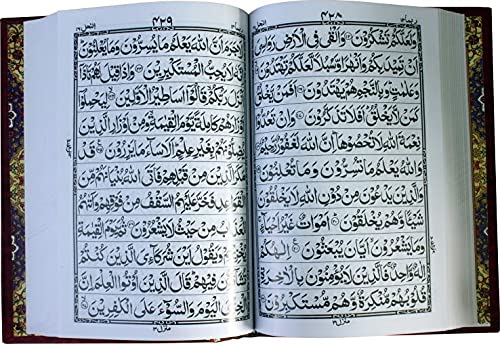 ٤٢٨
وَلَعَلَّكُمْ تَشْكُرُوْنَ وَاَلْقٰى فِي الْاَرْضِ رَوَاسِيَ
اَنْ تَمِيْدَ بِكُمْ وَاَنْهٰرًا وَّسُبُلًا لَّعَلَّكُمْ تَهْتَدُوْنَ
وَعَلٰمٰتٍ وَبِالنَّجْمِ هُمْ يَهْتَدُوْنَ اَفَمَنْ يَّخْلُقُ
كَمَنْ لَّا يَخْلُقُ اَفَلَا تَذَكَّرُوْنَ وَاِنْ تَعُدُّوْا
نِعْمَةَ اللّٰهِ لَا تُحْصُوْهَا اِنَّ اللّٰهَ لَغَفُوْرٌ رَّحِيْمٌ
وَاللّٰهُ يَعْلَمُ مَا تُسِرُّوْنَ وَمَا تُعْلِنُوْنَ
وَالَّذِيْنَ يَدْعُوْنَ مِنْ دُوْنِ اللّٰهِ لَا يَخْلُقُوْنَ
شَيْئًا وَّهُمْ يُخْلَقُوْنَ اَمْوَاتٌ غَيْرُ اَحْيَآءٍ
وَمَا يَشْعُرُوْنَ اَيَّانَ يُبْعَثُوْنَ اِلٰهُكُمْ
اِلٰهٌ وَّاحِدٌ فَالَّذِيْنَ لَا يُؤْمِنُوْنَ بِالْاٰخِرَةِ
قُلُوْبُهُمْ مُّنْكِرَةٌ وَّهُمْ مُّسْتَكْبِرُوْنَ
منزل ٣
النحل
٤٢٩
لَا جَرَمَ اَنَّ اللّٰهَ يَعْلَمُ مَا يُسِرُّوْنَ وَمَا يُعْلِنُوْنَ
اِنَّهٗ لَا يُحِبُّ الْمُسْتَكْبِرِيْنَ وَاِذَا قِيْلَ لَهُمْ مَّاذَآ
اَنْزَلَ رَبُّكُمْ قَالُوْٓا اَسَاطِيْرُ الْاَوَّلِيْنَ لِيَحْمِلُوْٓا
اَوْزَارَهُمْ كَامِلَةً يَّوْمَ الْقِيٰمَةِ وَمِنْ اَوْزَارِ الَّذِيْنَ
يُضِلُّوْنَهُمْ بِغَيْرِ عِلْمٍ اَلَا سَآءَ مَا يَزِرُوْنَ قَدْ
مَكَرَ الَّذِيْنَ مِنْ قَبْلِهِمْ فَاَتَى اللّٰهُ بُنْيَانَهُمْ مِّنَ
الْقَوَاعِدِ فَخَرَّ عَلَيْهِمُ السَّقْفُ مِنْ فَوْقِهِمْ
وَاَتٰىهُمُ الْعَذَابُ مِنْ حَيْثُ لَا يَشْعُرُوْنَ ثُمَّ يَوْمَ الْقِيٰمَةِ
يُخْزِيْهِمْ وَيَقُوْلُ اَيْنَ شُرَكَآءِيَ الَّذِيْنَ كُنْتُمْ
تُشَآقُّوْنَ فِيْهِمْ قَالَ الَّذِيْنَ اُوْتُوا الْعِلْمَ اِنَّ
الْخِزْيَ الْيَوْمَ وَالسُّوْٓءَ عَلَى الْكٰفِرِيْنَ
منزل ٣